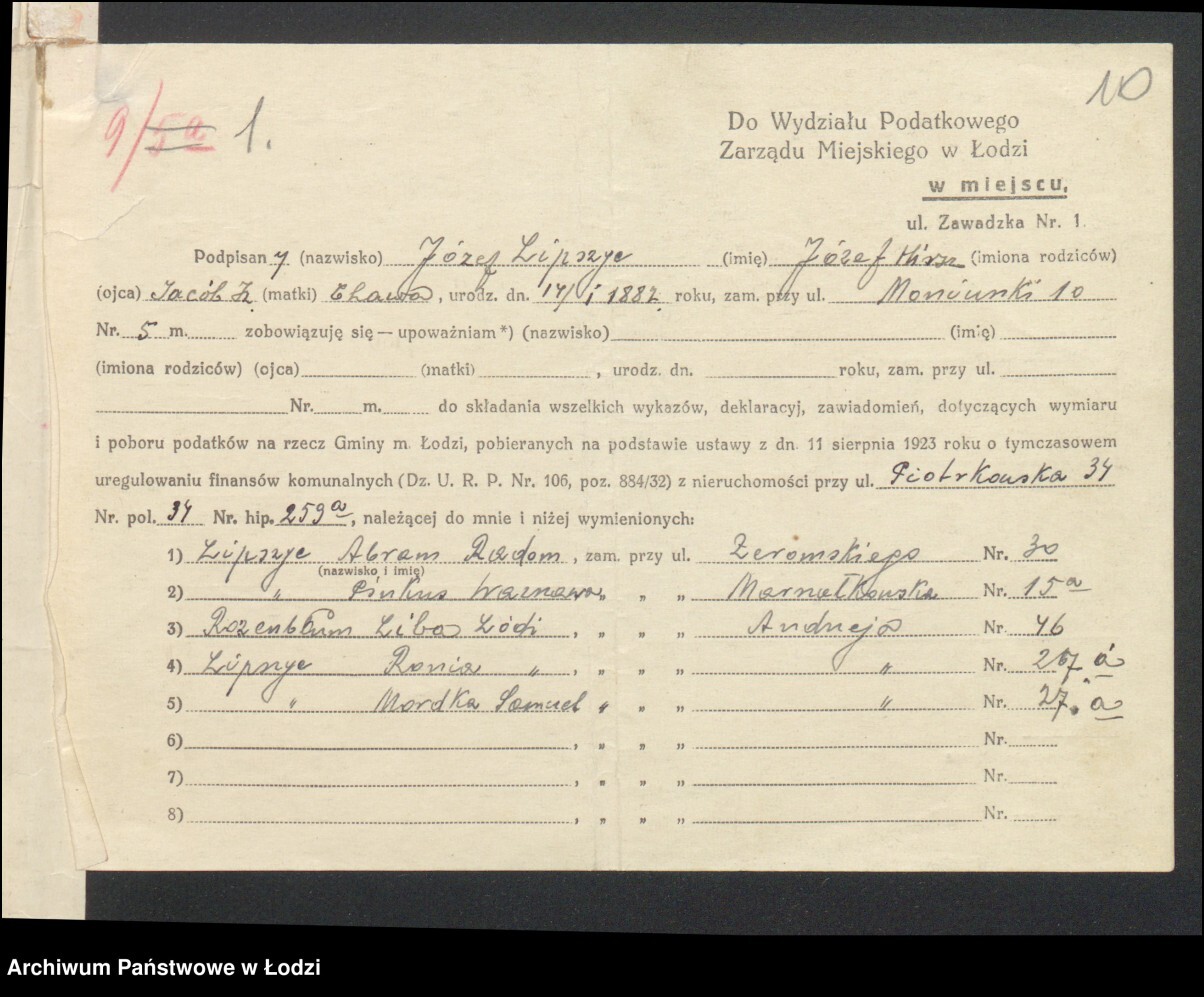 10
9/5a 1.
Do Wydziału Podatkowego
Zarządu Miejskiego w Łodzi
w miejscu,
ul. Zawadzka Nr. 1.
Podpisan y (nazwisko) Józef Lipszyc (imię) Józef Hirsz (imiona rodziców)
(ojca) Jacób (matki) Chawa, urodz. dn. 14/I 1882 roku, zam. przy ul. Moniuszki 10
Nr. 5 m. zobowiązuję się — upoważniam *) (nazwisko) (imię)
(imiona rodziców) (ojca) (matki) , urodz. dn. roku, zam. przy ul.
Nr. m. do składania wszelkich wykazów, deklaracyj, zawiadomień, dotyczących wymiaru
i poboru podatków na rzecz Gminy m. Łodzi, pobieranych na podstawie ustawy z dn. 11 sierpnia 1923 roku o tymczasowem
uregulowaniu finansów komunalnych (Dz. U. R. P. Nr. 106, poz. 884/32) z nieruchomości przy ul. Piotrkowska 34
Nr. pol. 34 Nr. hip. 259a, należącej do mnie i niżej wymienionych:
1) Lipszyc Abram Radom, zam. przy ul. Żeromskiego Nr. 30
(nazwisko i imię)
2) " Pinkus Warszawa, " " Marszałkowska Nr. 15a
3) Rozenblum Liba Łódź, " " " Andrzeja Nr. 46
4) Lipszyc Rania ", " " " " Nr.
5) " Mordka Samuel " " " " Nr. 27a
6) , " " " Nr.
7) , " " " Nr.
8) , " " " Nr.
Archiwum Państwowe w Łodzi